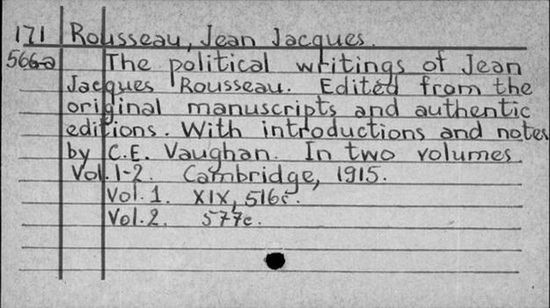 171 Rousseau, Jean Jacques.
566a The political writings of Jean
Jacques Rousseau. Edited from the
original manuscripts and authentic
editions. With introductions and notes
by C.E. Vaughan. In two volumes.
Vol. 1-2. Cambridge, 1915.
Vol. 1. XIX, 516c.
Vol. 2. 577c.